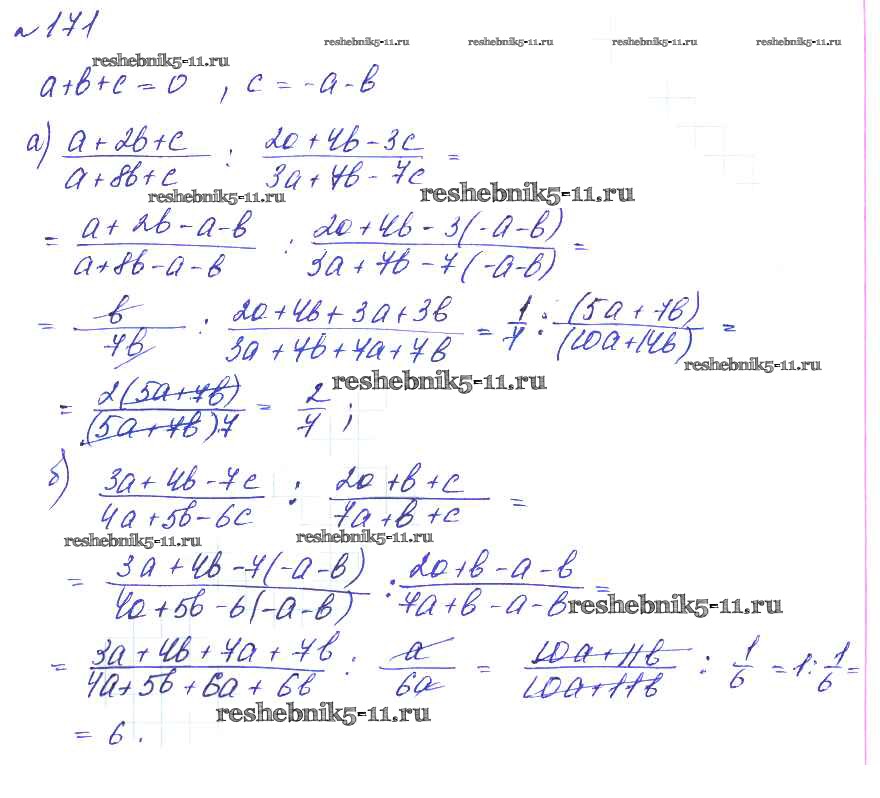 № 171
reshebnik5-11.ru reshebnik5-11.ru reshebnik5-11.ru reshebnik5-11.ru reshebnik5-11.ru
a+b+c=0 , c = -a-b
а) (a+2b+c)/(a+8b+c) : (2a+4b-3c)/(3a+7b-7c) =
reshebnik5-11.ru reshebnik5-11.ru
= (a+2b-a-b)/(a+8b-a-b) : (2a+4b-3(-a-b))/(3a+7b-7(-a-b)) =
= b/7b : (2a+4b+3a+3b)/(3a+7b+7a+7b) = 1/7 : (5a+7b)/(10a+14b) =
reshebnik5-11.ru
reshebnik5-11.ru
= 2(5a+7b)/(5a+7b)7 = 2/7 ;
б) (3a+4b-7c)/(4a+5b-6c) : (2a+b+c)/(7a+b+c) =
reshebnik5-11.ru reshebnik5-11.ru
= (3a+4b-7(-a-b))/(4a+5b-6(-a-b)) : (2a+b-a-b)/(7a+b-a-b) =
reshebnik5-11.ru
= (3a+4b+7a+7b)/(4a+5b+6a+6b) : a/6a = (10a+11b)/(10a+11b) : 1/6 = 1 : 1/6 =
reshebnik5-11.ru
= 6 .